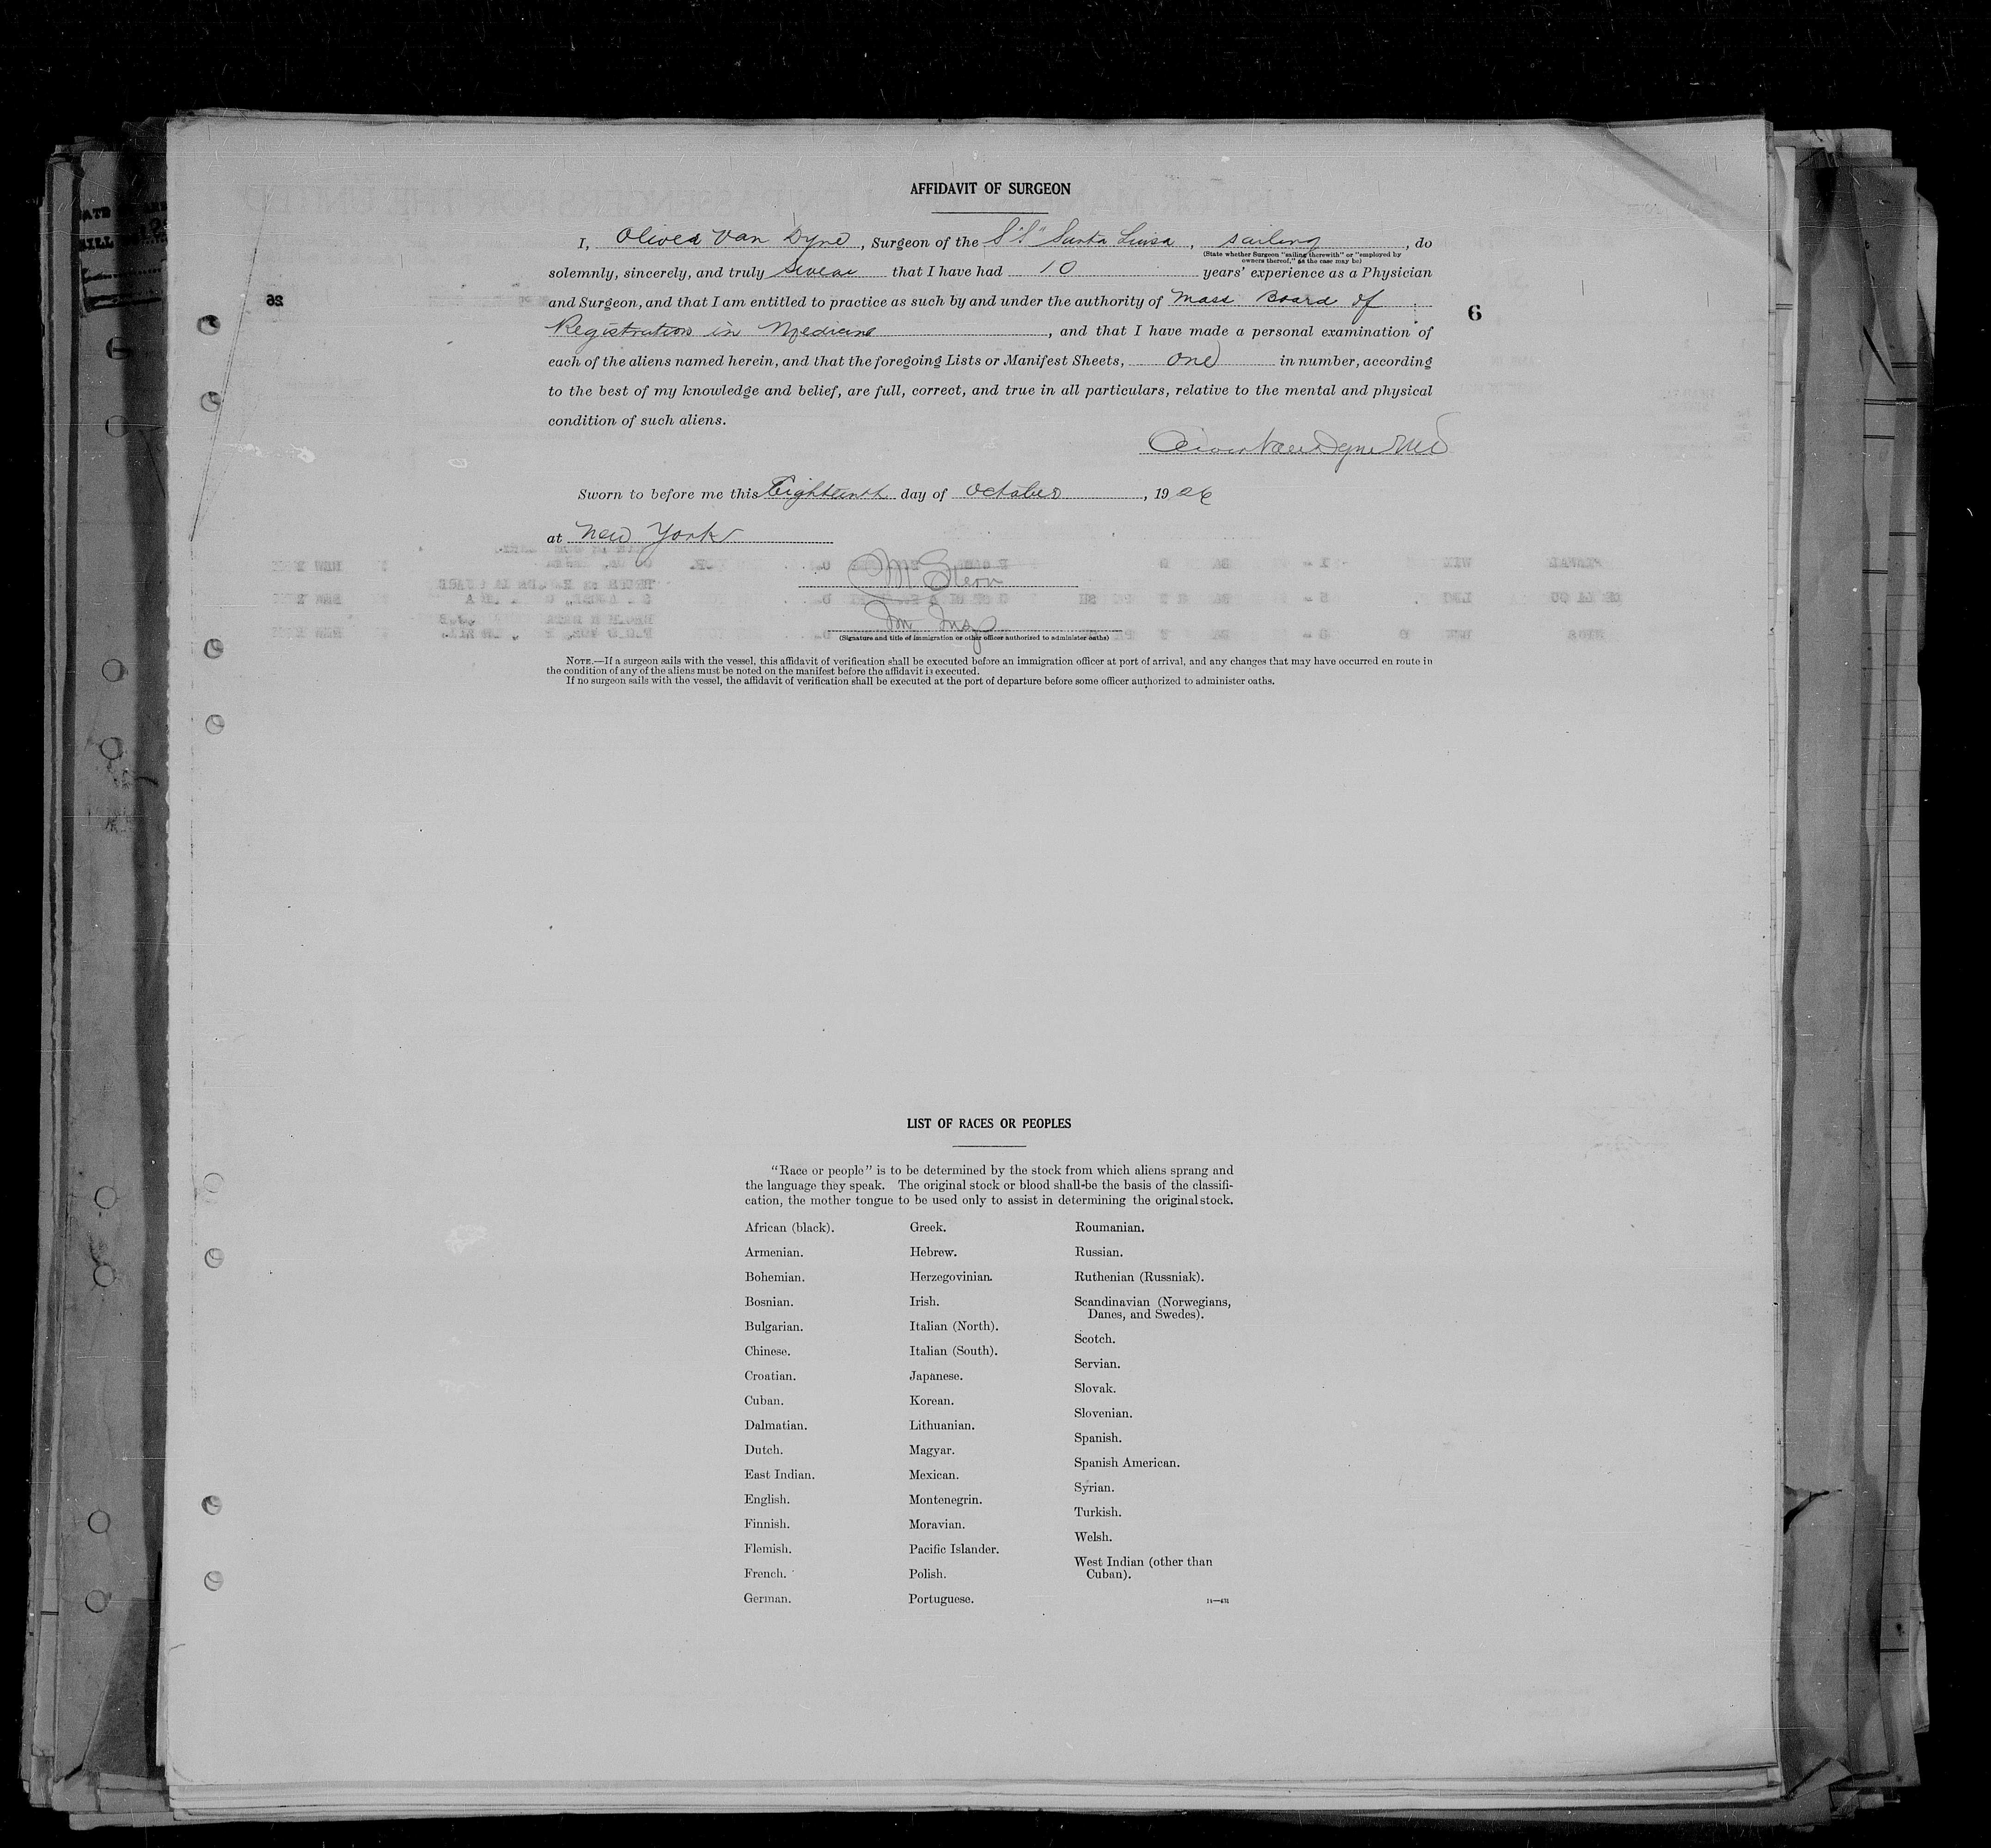 AFFIDAVIT OF SURGEON
I, Oliver Van Dyne, Surgeon of the S"S" Santa Luisa, sailing, do
(State whether Surgeon "sailing therewith" or "employed by
owners thereof," as the case may be)
solemnly, sincerely, and truly swear that I have had 10 years' experience as a Physician
and Surgeon, and that I am entitled to practice as such by and under the authority of Mass Board of
Registration in Medicine, and that I have made a personal examination of
each of the aliens named herein, and that the foregoing Lists or Manifest Sheets, one in number, according
to the best of my knowledge and belief, are full, correct, and true in all particulars, relative to the mental and physical
condition of such aliens.
Oliver Van Dyne MD
Sworn to before me this Eighteenth day of October, 1926
at New York
Im Insp
(Signature and title of immigration or other officer authorized to administer oaths)
NOTE.—If a surgeon sails with the vessel, this affidavit of verification shall be executed before an immigration officer at port of arrival, and any changes that may have occurred en route in
the condition of any of the aliens must be noted on the manifest before the affidavit is executed.
If no surgeon sails with the vessel, the affidavit of verification shall be executed at the port of departure before some officer authorized to administer oaths.
6
LIST OF RACES OR PEOPLES
"Race or people" is to be determined by the stock from which aliens sprang and
the language they speak. The original stock or blood shall be the basis of the classifi-
cation, the mother tongue to be used only to assist in determining the original stock.
African (black).
Armenian.
Bohemian.
Bosnian.
Bulgarian.
Chinese.
Croatian.
Cuban.
Dalmatian.
Dutch.
East Indian.
English.
Finnish.
Flemish.
French.
German.
Greek.
Hebrew.
Herzegovinian.
Irish.
Italian (North).
Italian (South).
Japanese.
Korean.
Lithuanian.
Magyar.
Mexican.
Montenegrin.
Moravian.
Pacific Islander.
Polish.
Portuguese.
Roumanian.
Russian.
Ruthenian (Russniak).
Scandinavian (Norwegians,
Danes, and Swedes).
Scotch.
Servian.
Slovak.
Slovenian.
Spanish.
Spanish American.
Syrian.
Turkish.
Welsh.
West Indian (other than
Cuban).